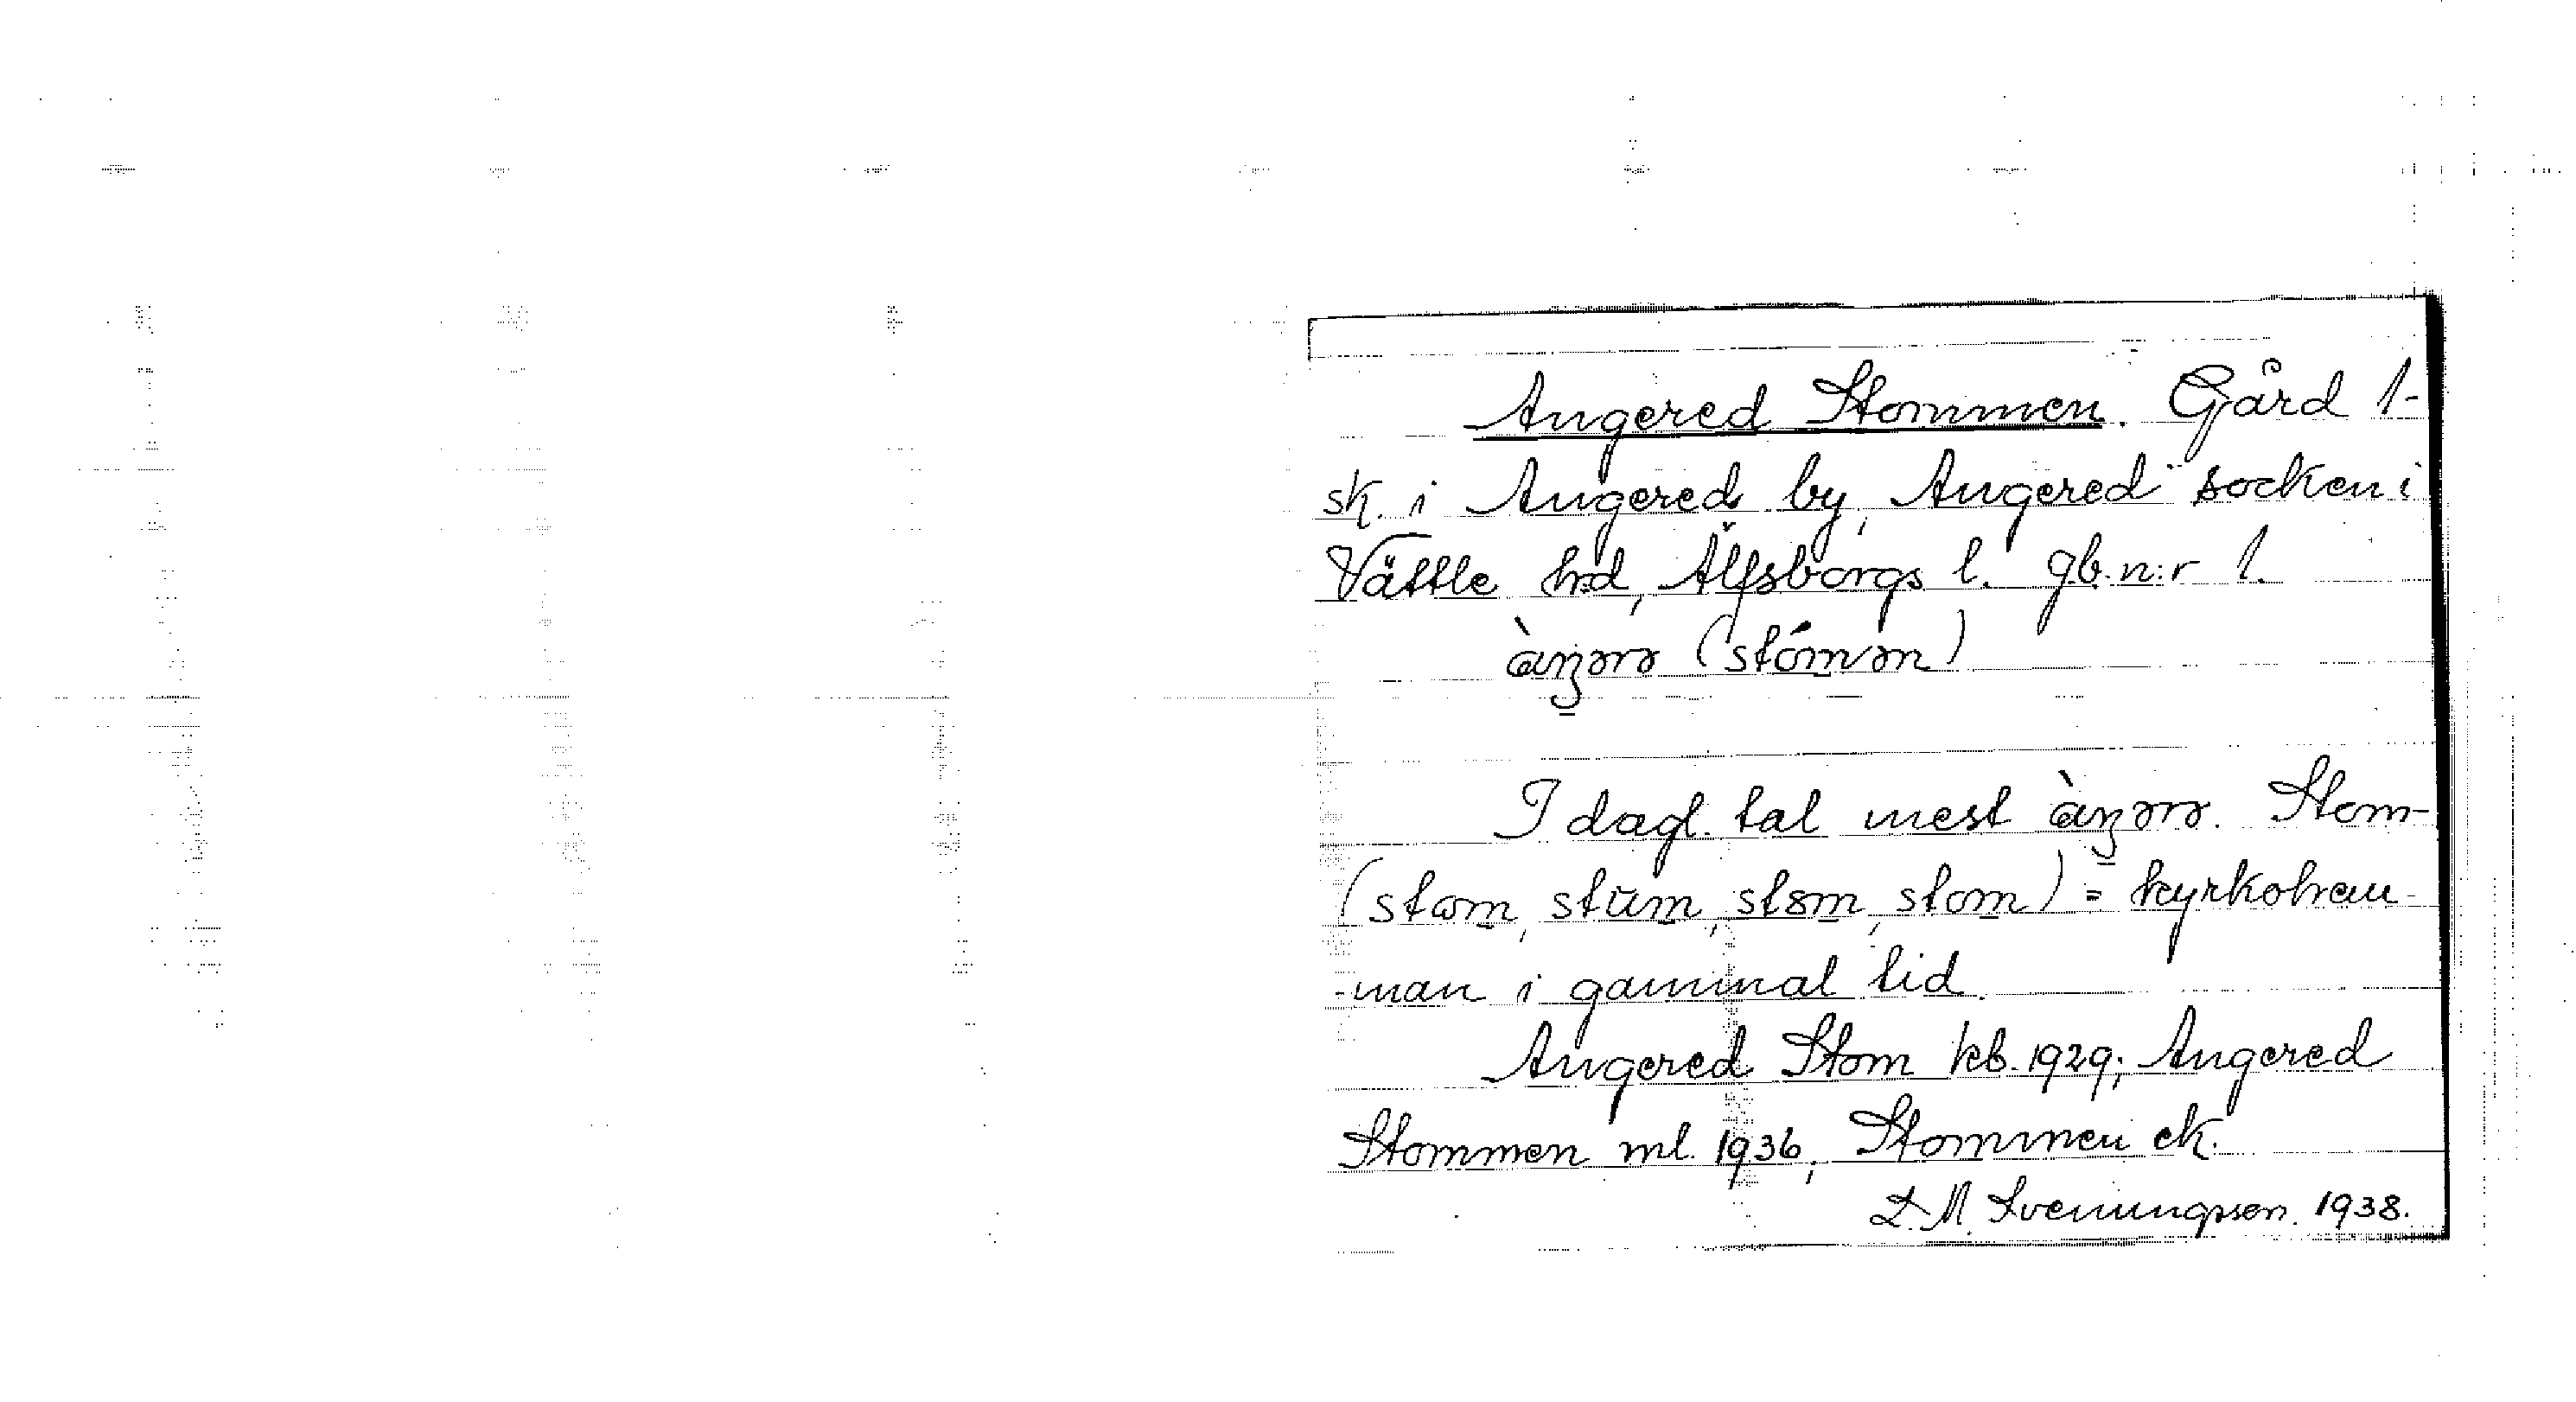 Angered Stommen. Gård 1-
sk. i Angered by, Angered socken i
Vättle hd, Älfsborgs l. gb. n:r 1.
àŋərə (stómən)
I dagl. tal mest àŋərə. Stom-
(stɷm, stŭm, stɞm, stom) = kyrkohem-
-man i gammal tid.
Angered Stom kb. 1929; Angered
Stommen ml. 1936, Stommen ek.
L. M. Svenungsson. 1938.